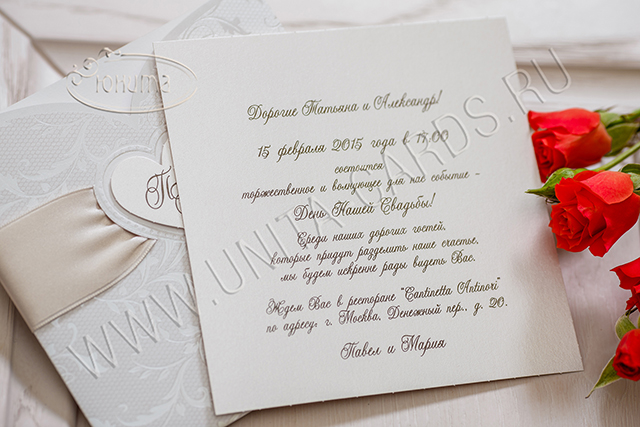 Юнита
Дорогие Татьяна и Александр!
15 февраля 2015 года в 17.00
состоится
торжественное и волнующее для нас событие -
День Нашей Свадьбы!
Среди наших дорогих гостей,
которые придут разделить наше счастье,
мы будем искренне рады видеть Вас.
Ждем Вас в ресторане "Cantinetta Antinori"
по адресу: г. Москва, Денежный пер., д. 20.
Павел и Мария
WWW.UNITA-CARDS.RU